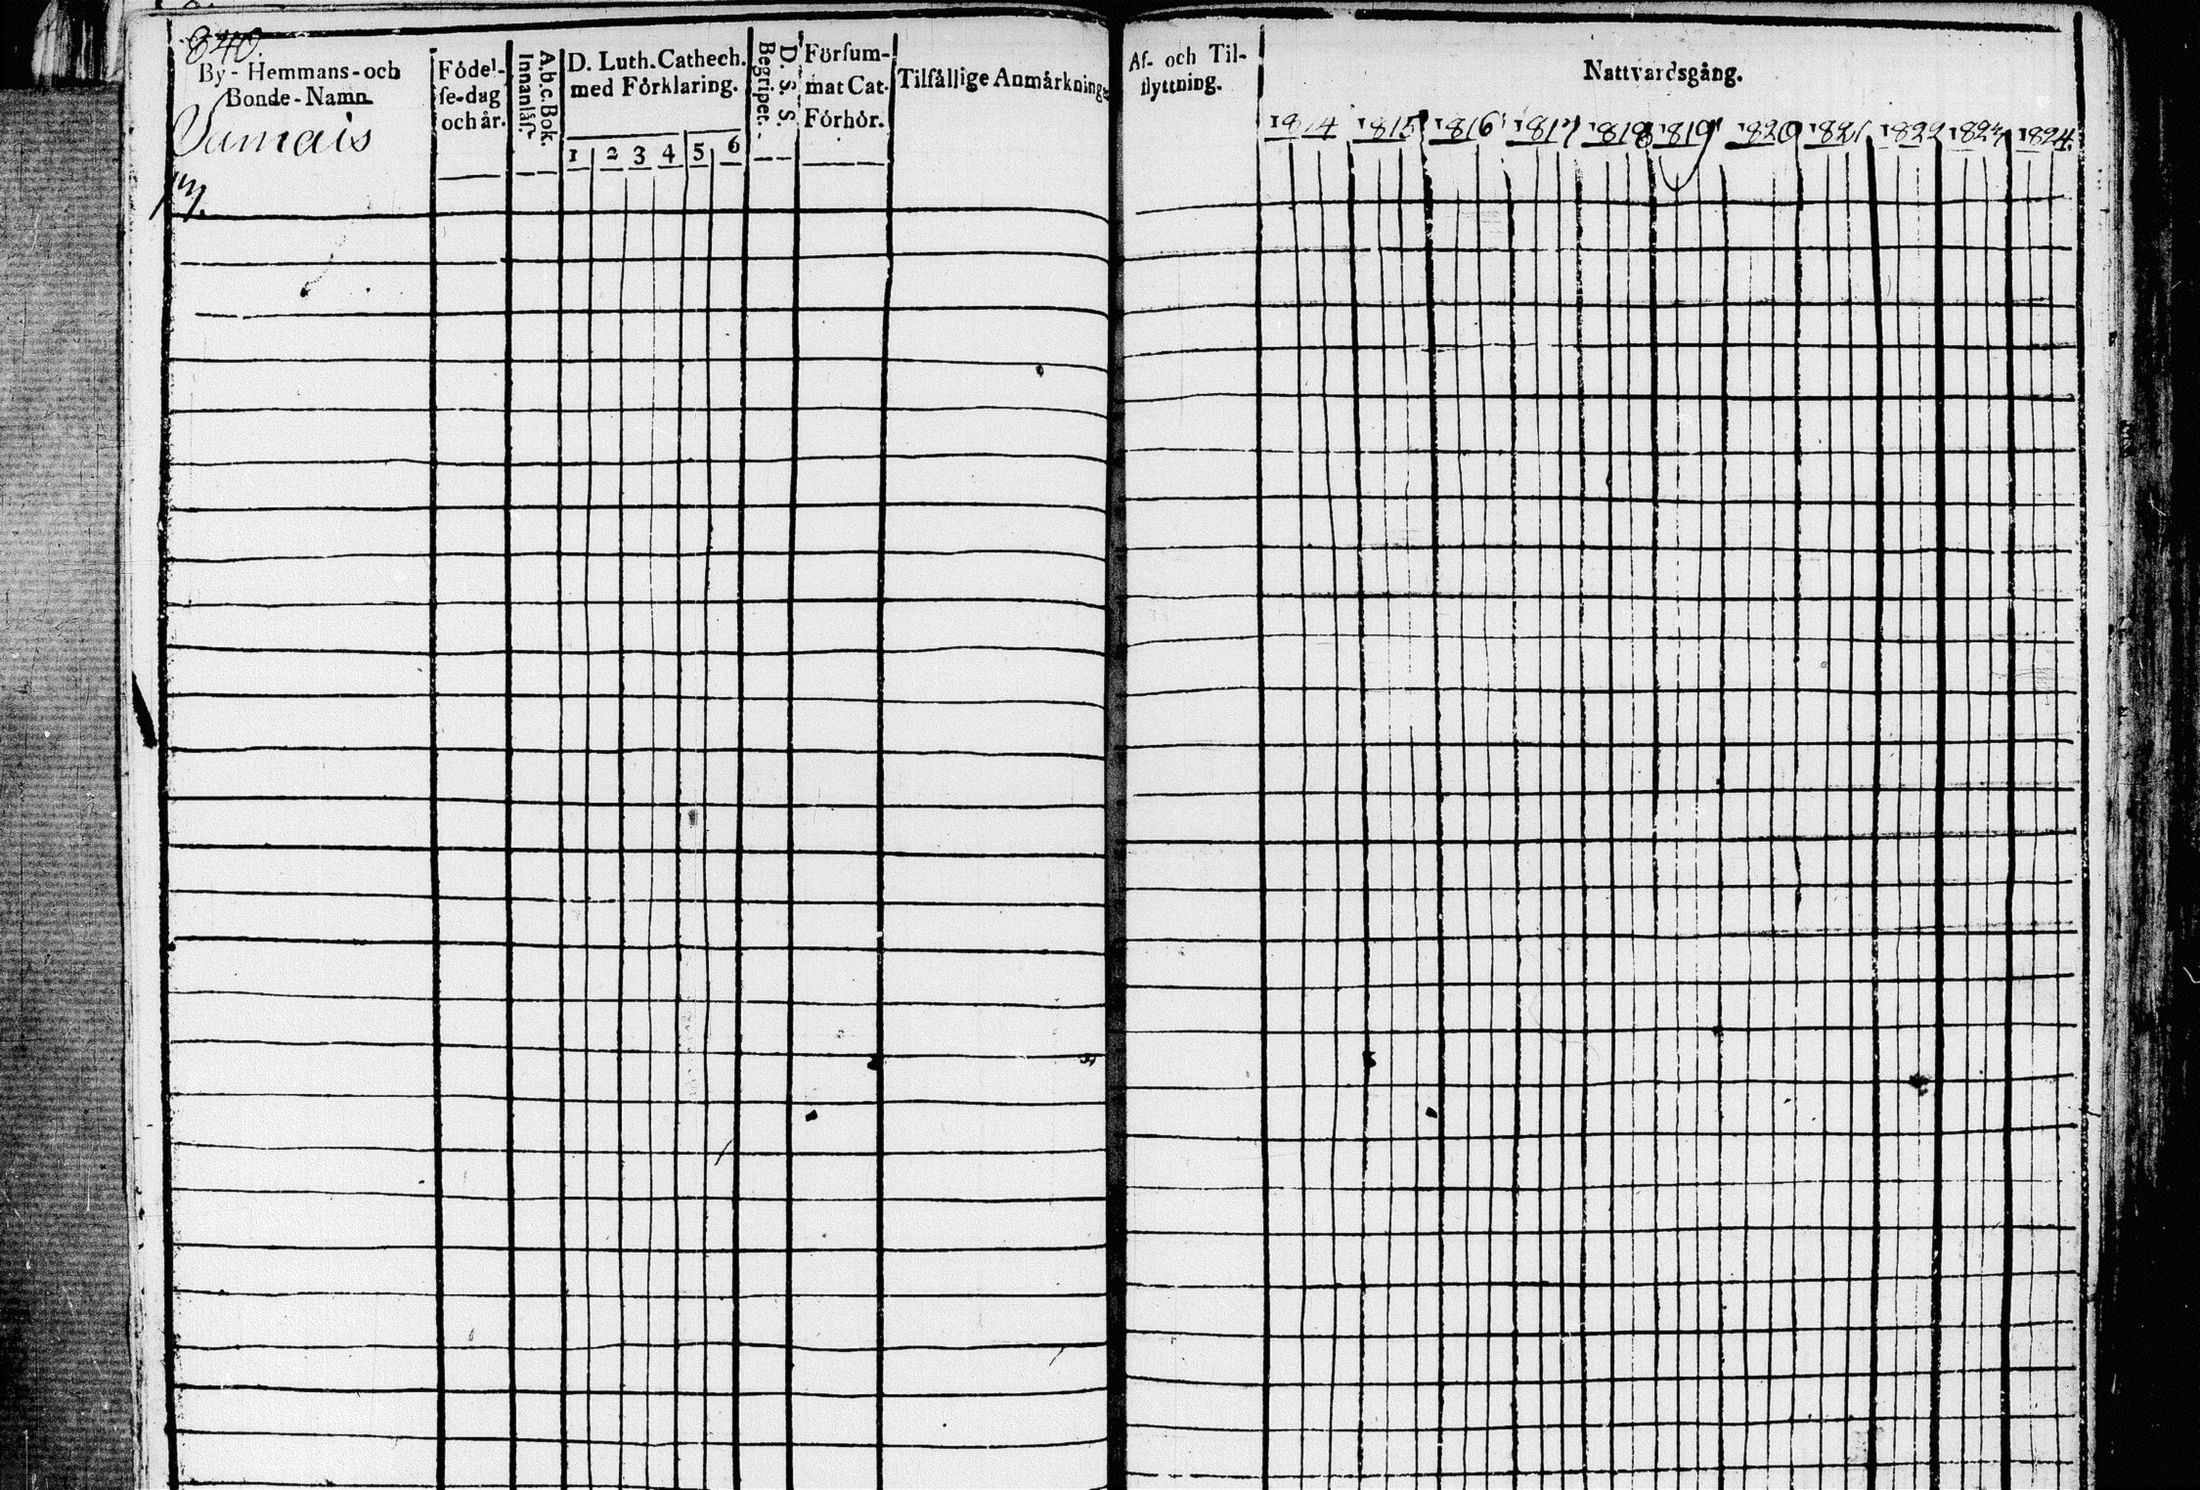 840.
By- Hemmans- och
Bonde-Namn
Födel-
se-dag
och år.
A.b.c.Bok.
Innanläs:
D. Luth. Cathech.
med Förklaring.
1 2 3 4 5 6
D. S. S.
Begripet.
Försum-
mat Cat.
Förhör.
Tilfällige Anmärkning
Af- och Til-
flyttning.
Nattvardsgång.
1814 1815 1816 1817 1818 1819 1820 1821 1822 1823 1824.